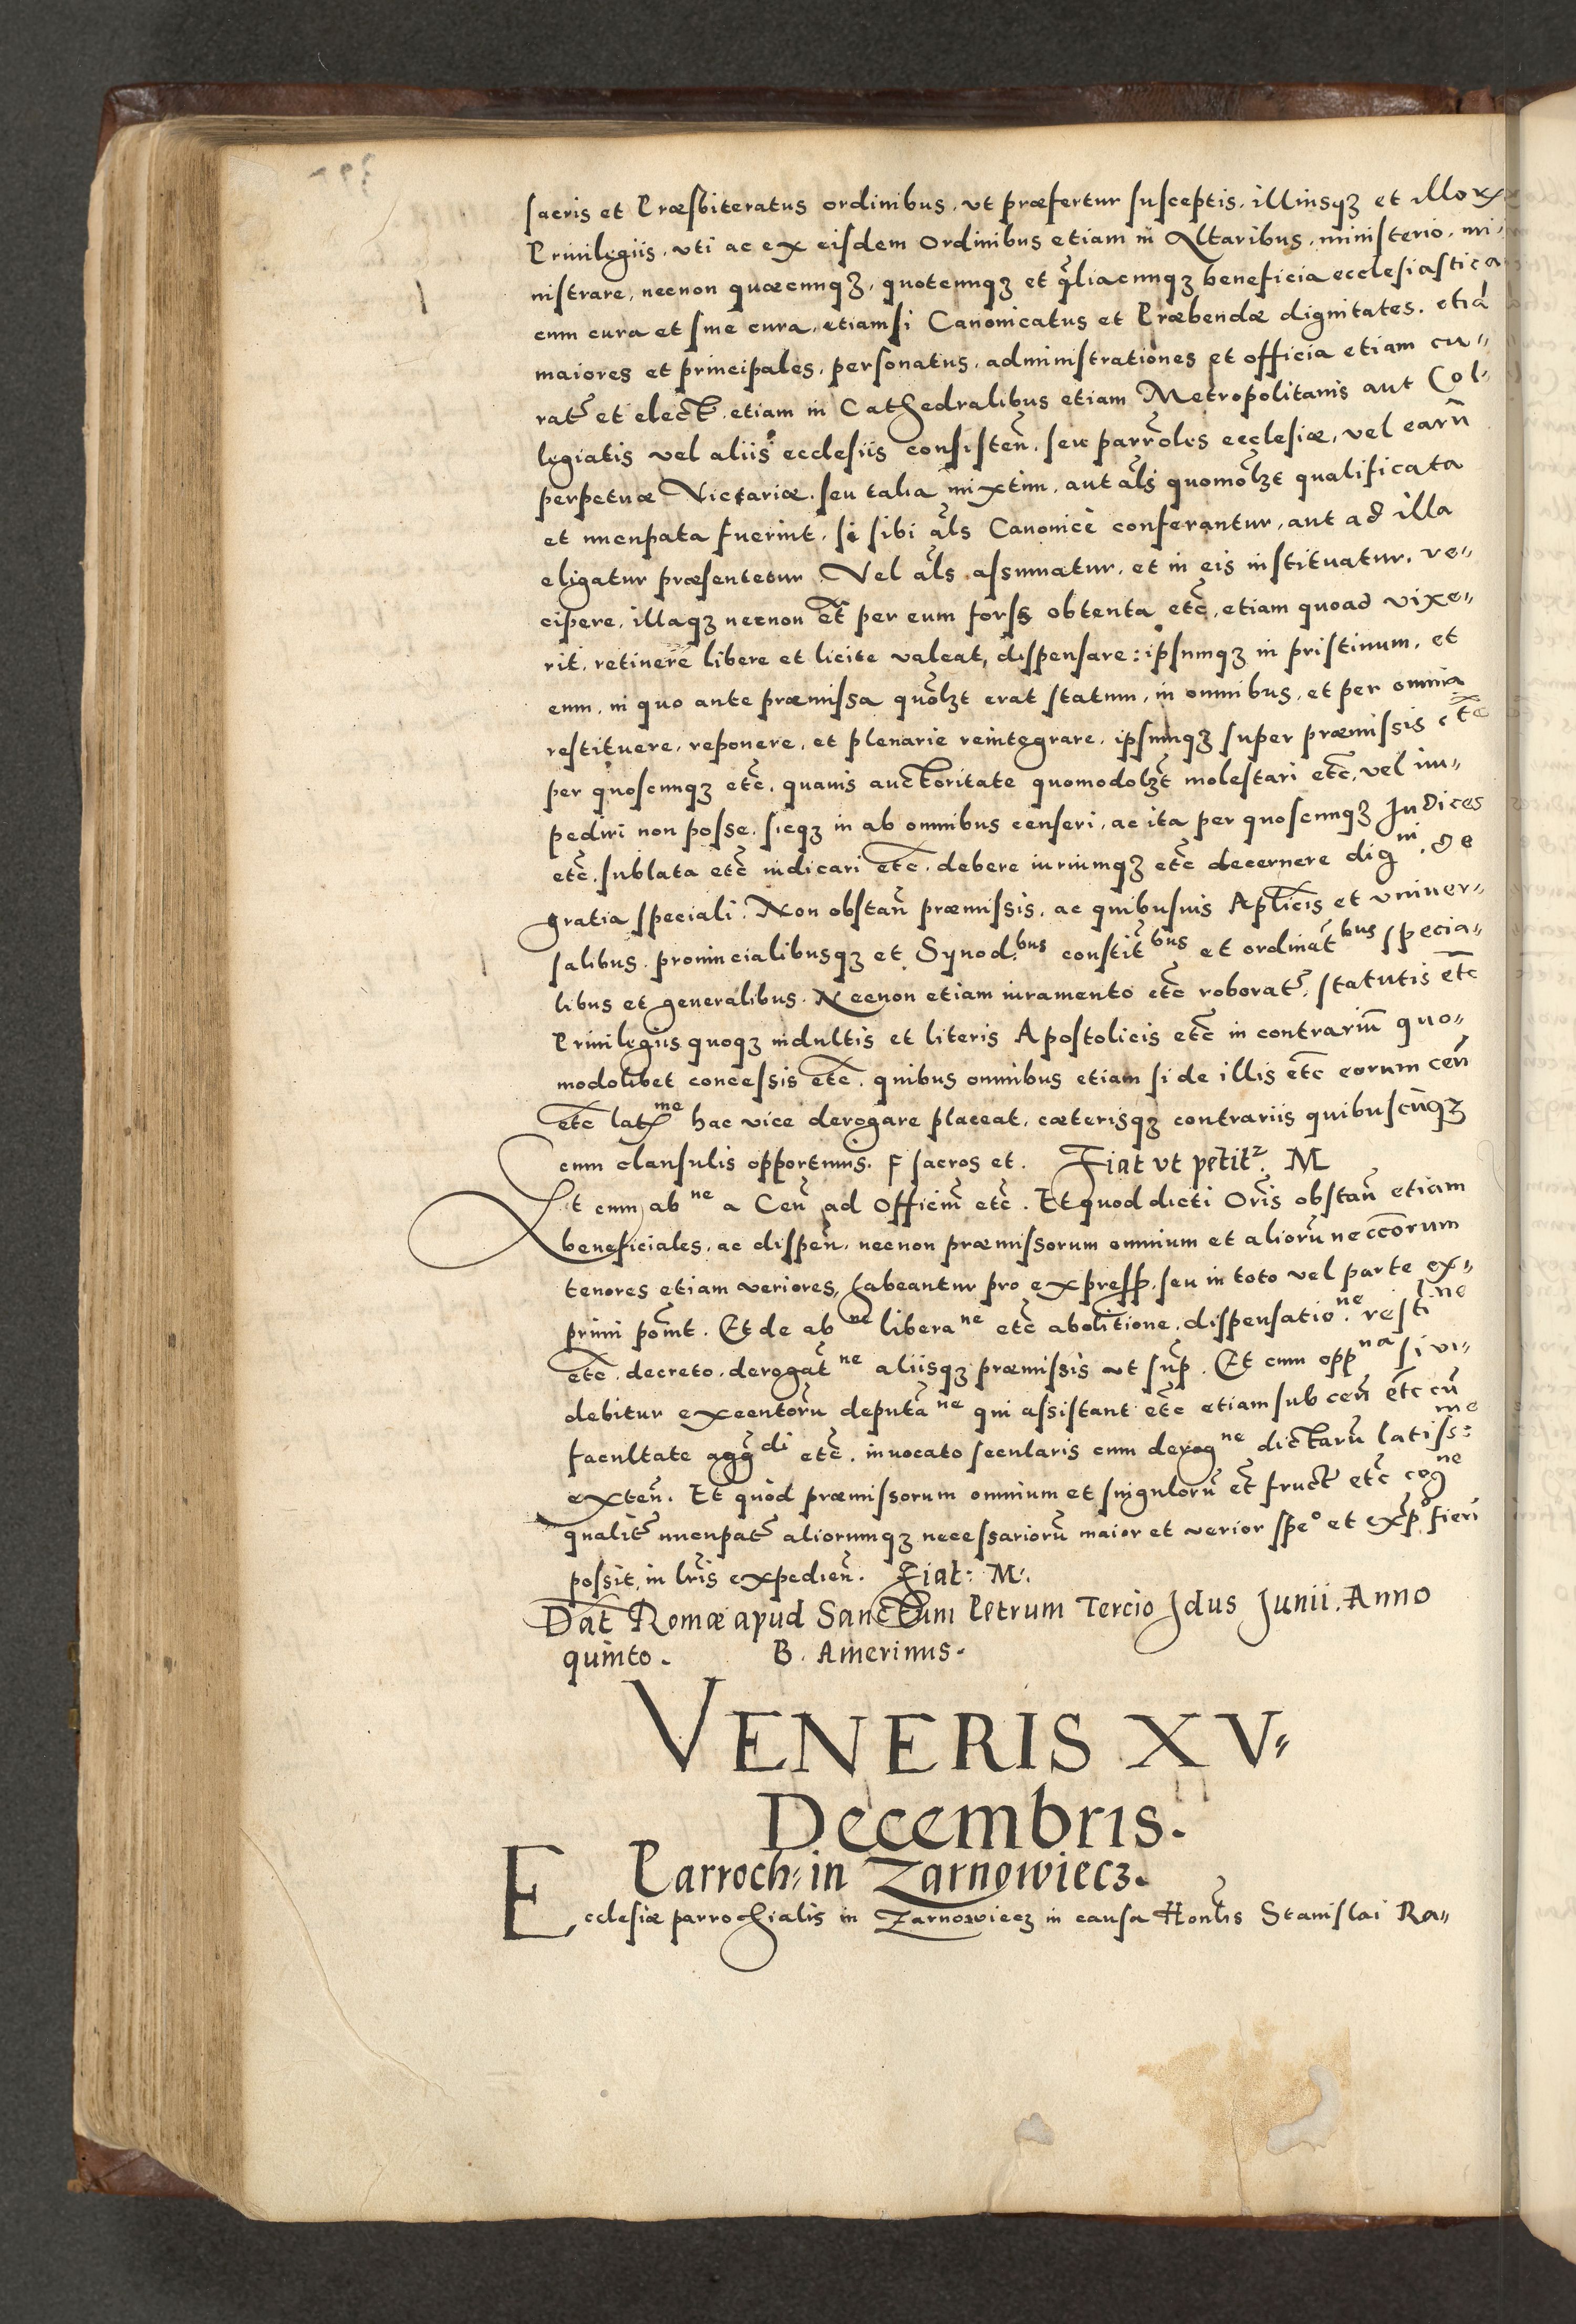 sacris et Præsbiteratus ordinibus, vt præfertur susceptis, illiusqꝫ et illoꝝ
Priuilegiis, vti ac ex eisdem Ordinibus etiam in Altaribus, ministerio, mi-
nistrare, necnon quæcunqꝫ, quotcunqꝫ et q̃liacunqꝫ beneficia ecclesiastica
cum cura et sine cura, etiamsi Canonicatus et Præbendæ dignitates, etiã
maiores et principales, personatus, administrationes et officia etiam cu-
rat̃ et elect̃, etiam in Cathedralibus etiam Metropolitanis aut Col-
legiatis vel aliis ecclesiis consisteñ, seu parrõles ecclesiæ, vel earũ
perpetuæ Vicariæ, seu talia mixtim, aut al̃s quomol̃ꝫt qualificata
et nuncupata fuerint, si sibi al̃s Canonicè conferantur, aut ad illa
eligatur præsentetur Vel al̃s assumatur, et in eis instituatur, re-
cipere, illaqꝫ necnon et̃ per eum forss obtenta etc̃, etiam quoad vixe-
rit, retinere libere et licite valeat, dispensare: ipsumqꝫ in pristinum, et
eum, in quo ante præmissa quol̃ꝫt erat statum, in omnibus, et per omnia
restituere, reponere, et plenarie reintegrare, ipsumqꝫ super præmissis etc̃
per quoscunqꝫ etc̃, quauis auctoritate quomodolꝫt̃ molestari etc̃, vel im-
pediri non posse, sicqꝫ in ab omnibus censeri, ac ita per quoscunqꝫ Judices
etc̃, sublata etc̃ iudicari etc̃, debere irriumqꝫ etc̃ decernere dig ni, de
gratia speciali. Non obstañ præmissis, ac quibusuis Apl̃icis et vniuer-
salibus, prouincialibusqꝫ et Synod.bus constit̃bus et ordinat̃bus specia-
libus et generalibus. Necnon etiam iuramento etc̃ roborat̃, statutis etc̃
Priuilegiis quoqꝫ indultis et literis Apostolicis etc̃ in contrariũ quo-
modolibet concessis etc̃, quibus omnibus etiam si de illis etc̃ eorum ceñ
etc̃ lat̃me hac vice derogare placeat, cæterisqꝫ contrariis quibuscũqꝫ
cum clausulis opportunis. F sacros et. Fiat vt petit². M
Et cum ab ne a Ceñ ad Officiũ etc̃. Et quod dicti Or̃is obstañ etiam
beneficiales, ac dispeñ, necnon præmissorum omnium et aliorũ neccõrum
tenores etiam veriores, habeantur pro express, seu in toto vel parte ex-
primi poñt. Et de ab ne libera ne etc̃ abolitione, dispensatio ne, resti ne
etc̃, decreto, derogat̃ ne aliisqꝫ præmissis vt sup̃. Et cum opp na si vi-
debitur executorũ deputã ne qui assistant etc̃ etiam sub ceñ etc̃ cũ
facultate agg̃ di etc̃, inuocato secularis cum derog ne dictarũ latiss: me
exteñ. Et quod præmissorum omnium et singulorũ et̃ fruct̃ etc̃ cog ne
qualit̃ nuncupat̃ aliorumqꝫ necessariorũ maior et verior spe° et exp̃° fieri
possit in lr̃is expedieñ. Fiat: M:
Dat̃ Romæ apud Sanctum Petrum Tercio Jdus Junii. Anno
quinto. B. Amerinus.
VENERIS XV
Decembris.
Parroch: in Zarnowiecz.
Ecclesiæ parrochialis in Zarnowiecz in causa Honl̃is Stanislai Ra-